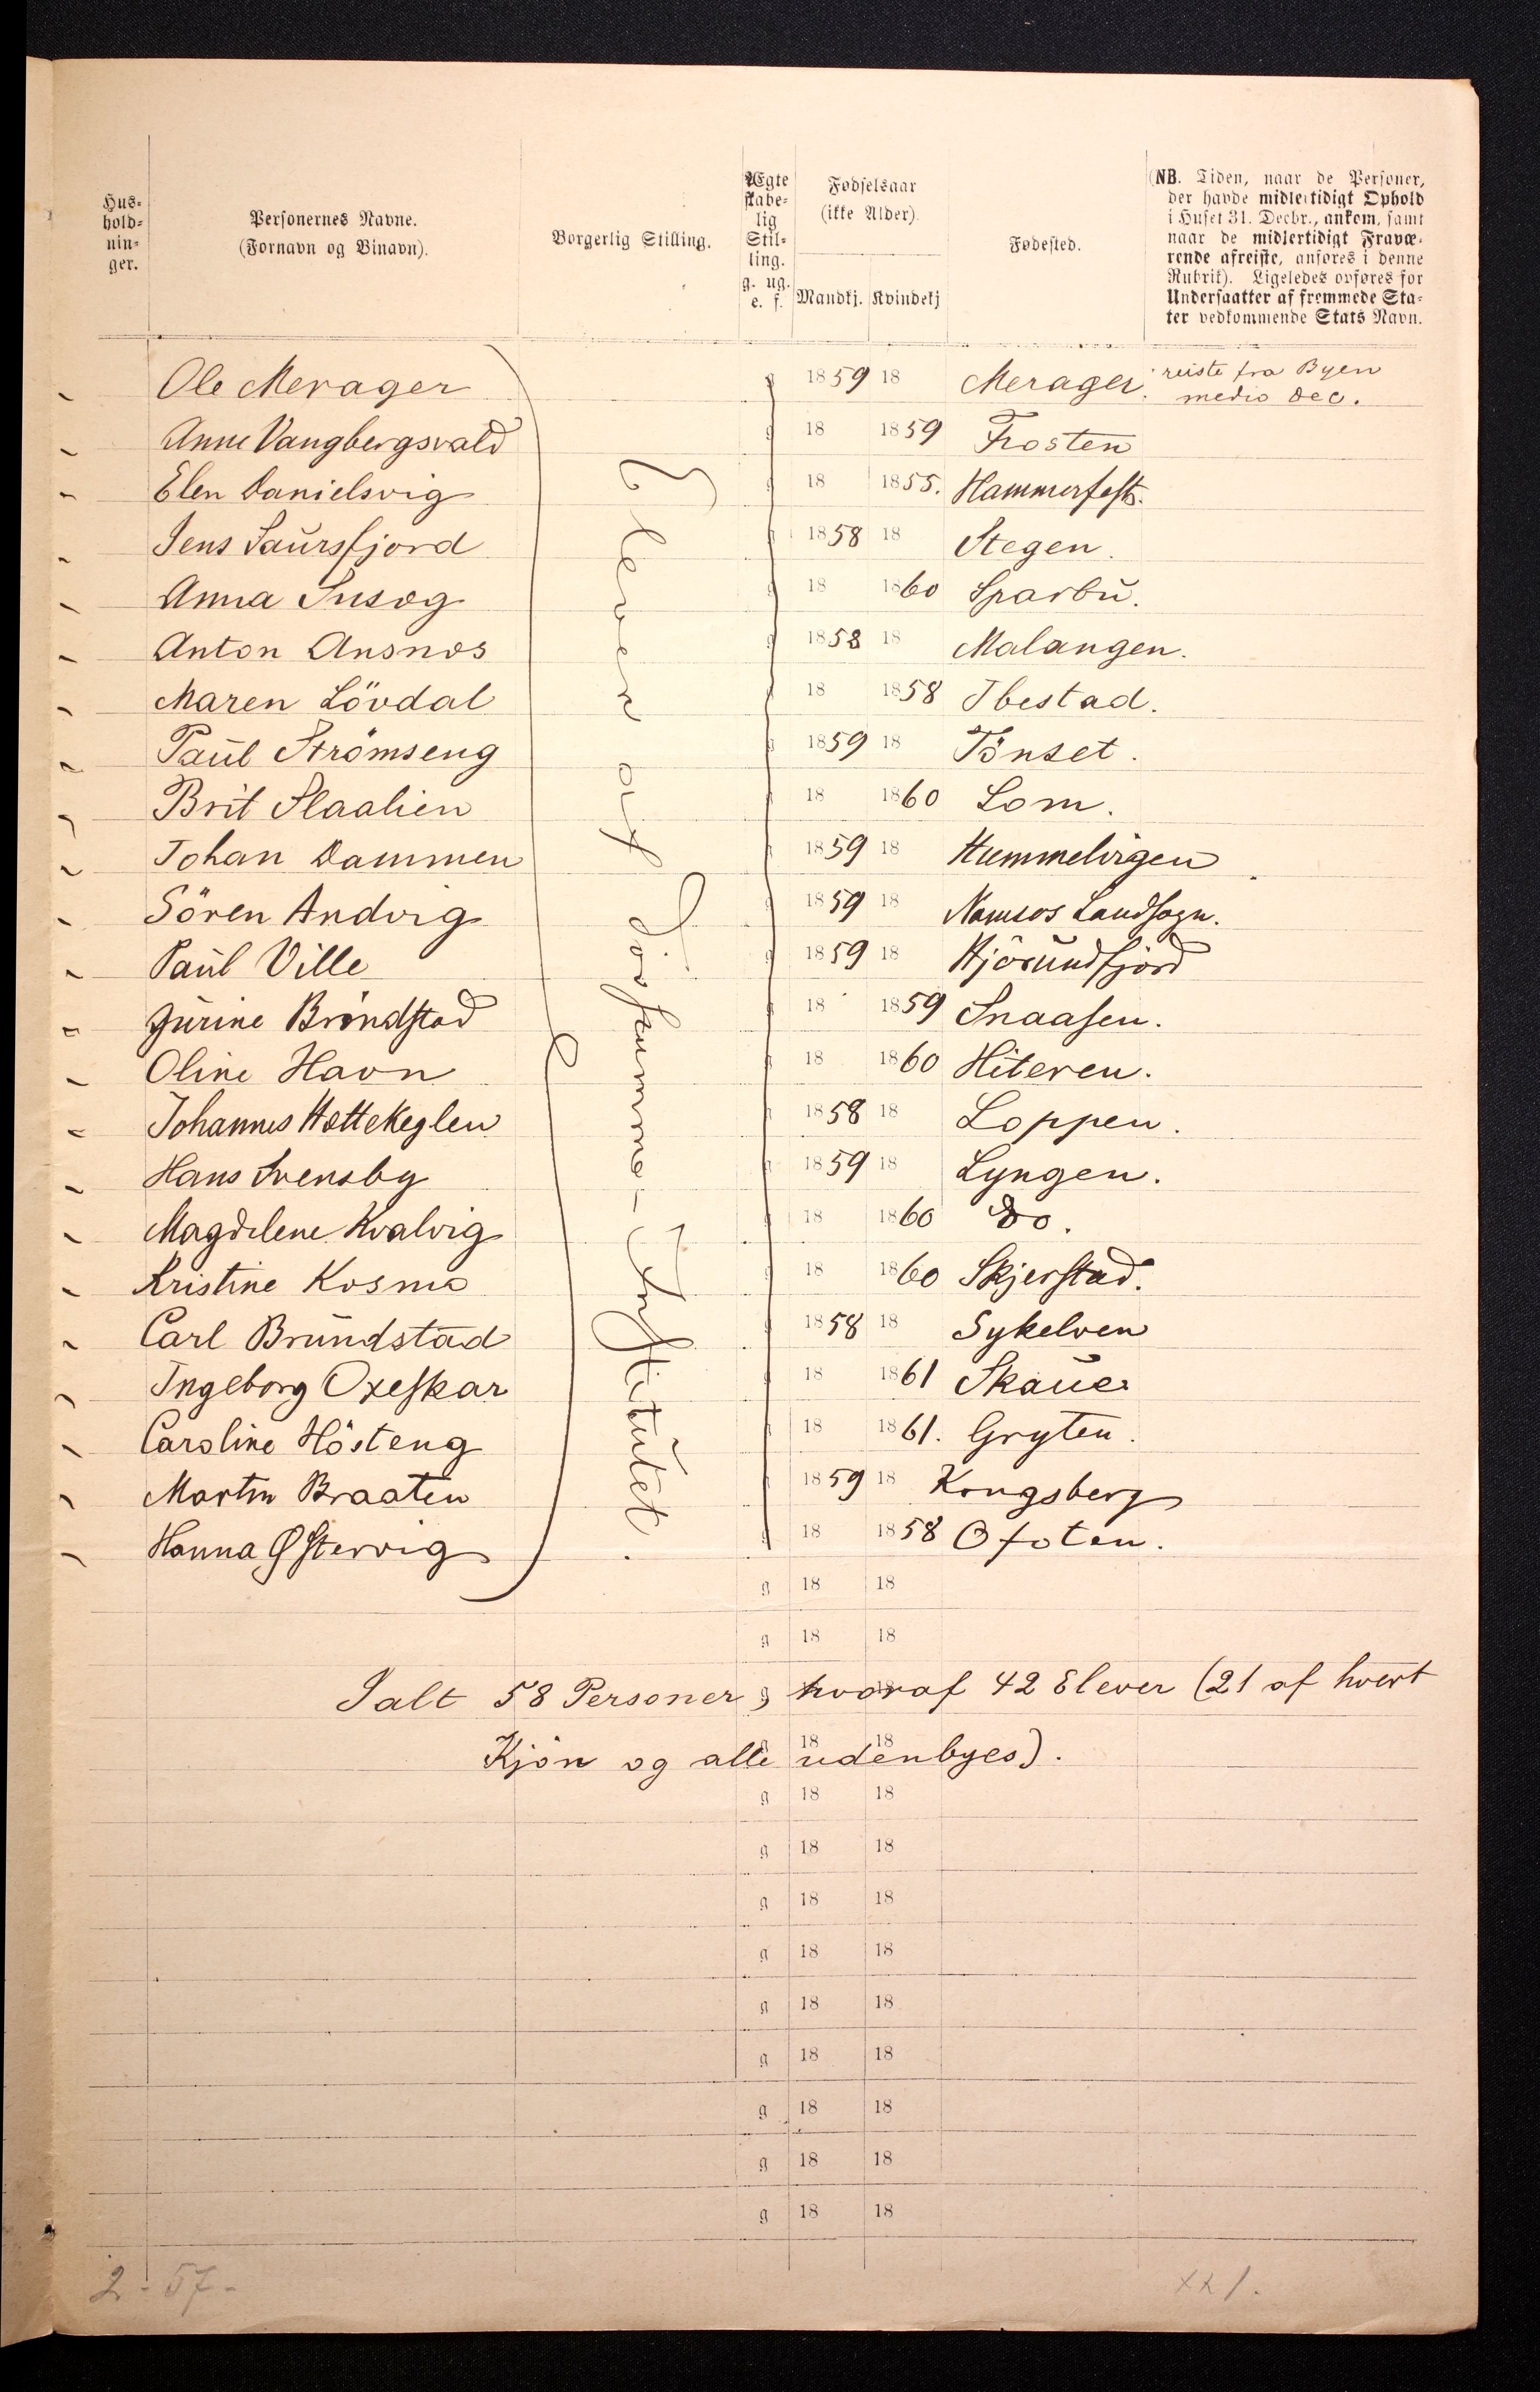 Hus-
hold-
nin-
ger.
Personernes Navne.
(Fornavn og Binavn).
Borgerlig Stilling.
Ægte
skabe-
lig
Stil-
ling.
g. ug.
e. f.
Fødselsaar
(ikke Alder).
Mandkj. Kvindekj
Fødested.
(NB. Tiden, naar de Personer,
der havde midlertidigt Ophold
i Huset 31. Decbr., ankom, samt
naar de midlertidigt Fravæ-
rende afreiste, anføres i denne
Rubrik). Ligeledes opføres for
Undersaatter af fremmede Sta-
ter vedkommende Stats Navn.
Ole Merager g 1859 18 Merager. reiste fra Byen
medio Dec.
Anne Vangbergsvald g 18 1859 Frosten
Elen Danielsvig g 18 1855. Hammerfest.
Jens Saursfjord g 1858 18 Stegen.
Anna Susog g 18 1860 Sparbu.
Anton Ansnos g 1858 18 Malangen.
Maren Lövdal g 18 1858 Ibestad.
Paul Strömseng g 1859 18 Tönset.
Brit Slaalien g 18 1860 Lom.
Johan Dammen g 1859 18 Hummelvigen
Sören Andvig g 1859 18 Namsos Landsogn.
Paul Ville g 1859 18 Hjörundfjord
Jurine Bröndstad g 18 1859 Snaasen.
Oline Havn g 18 1860 Hiteren.
Johannes Hettekeglen g 1858 18 Loppen.
Hans Svensby g 1859 18 Lyngen.
Magdelene Kvalvig g 18 1860 Do.
Kristine Kosmo g 18 1860 Skjerstad.
Carl Brundstad g 1858 18 Sykelven
Ingeborg Oxeskar g 18 1861 Skaue
Caroline Hösteng g 18 1861. Gryten.
Martin Braaten g 1859 18 Kongsberg
Hanna Østervig g 18 1858 Ofoten.
Elever af Døvstumme-Institutet.
g 18 18
g 18 18
Ialt 58 Personer, hvoraf 42 Elever (21 af hvert
g 18
Kjön og alle udenbyes).
g 18 18
g 18 18
g 18 18
g 18 18
g 18 18
g 18 18
g 18 18
g 18 18
g 18 18
g 18 18
2 - 57 -
xx1.